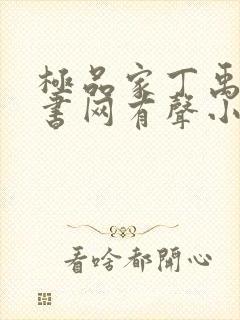 極品家丁禹
書网有聲小
看啥都開心